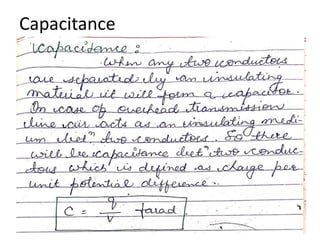 Capacitance
Capacitance :
When any two conductors
are separated by an insulating
material it will form a capacitor.
In case of overhead transmission
line air acts as an insulating medi-
um betⁿ two conductors. So there
will be capacitance betⁿ two conduc-
tors which is defined as charge per
unit potential difference.
C = q/V farad